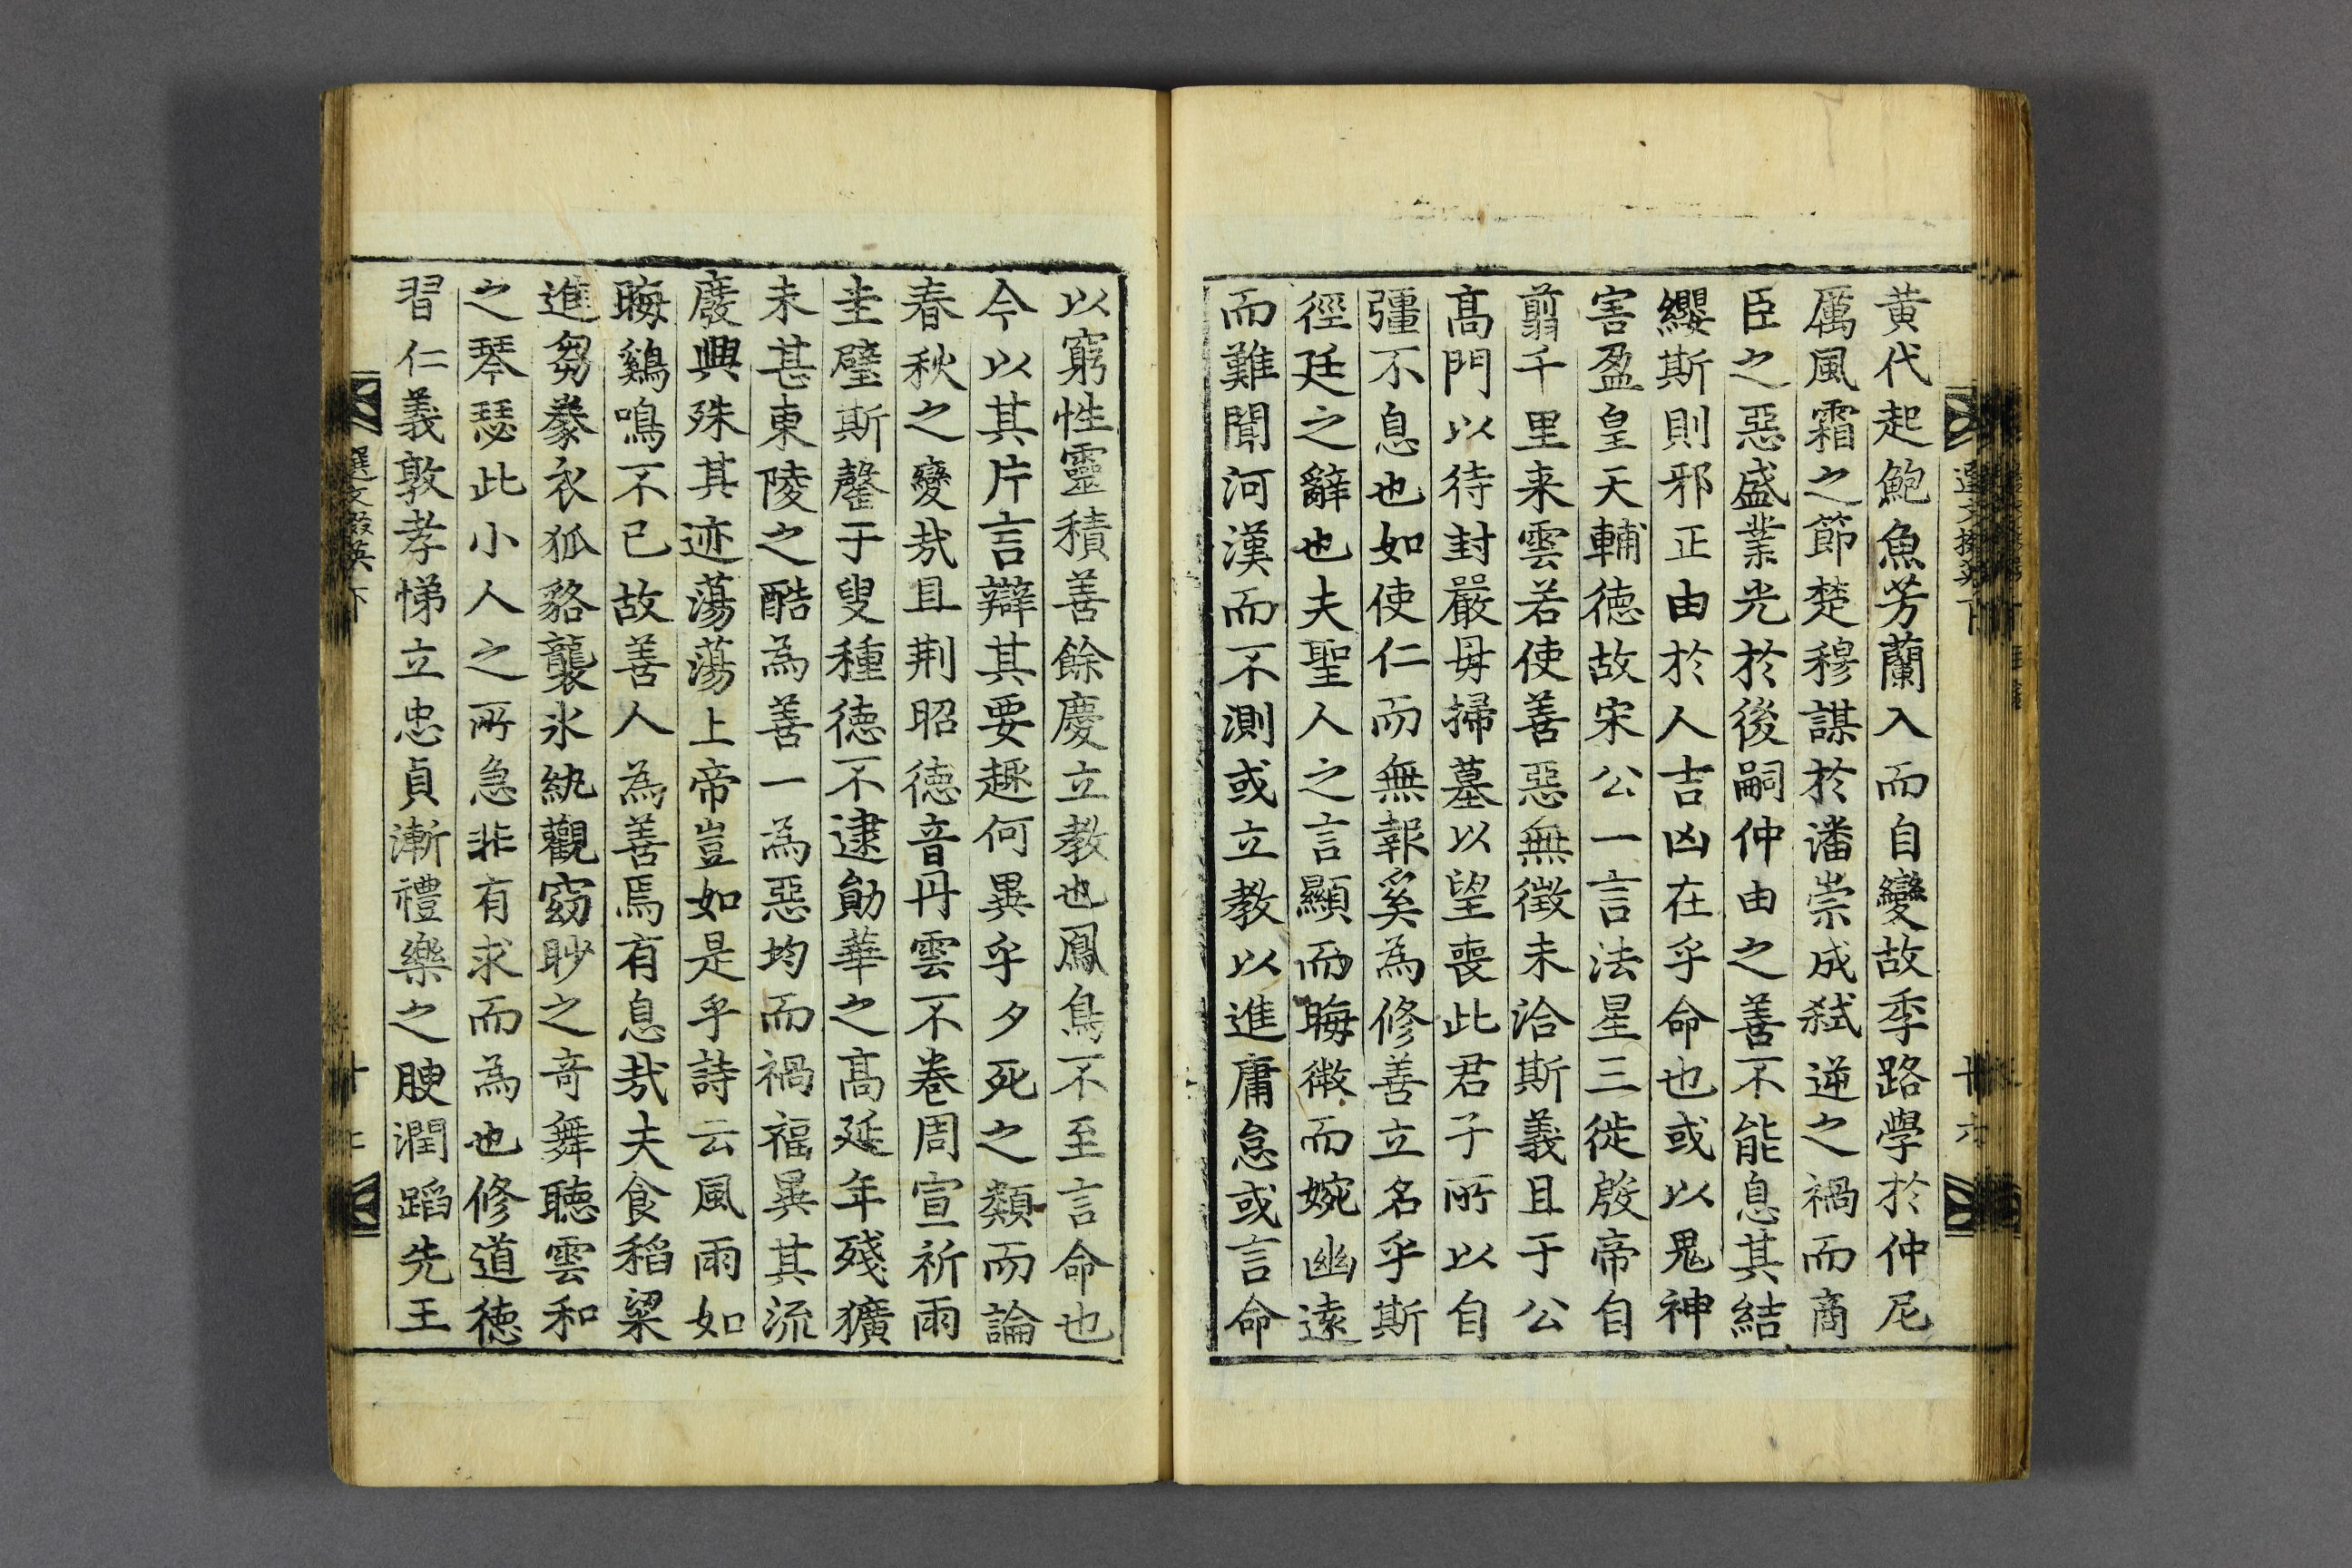 黄代起鮑魚芳蘭入而自變故季路學於仲尼
厲風霜之節楚穆謀於潘崇成弑逆之禍而商
臣之惡盛業光於後嗣仲由之善不能息其結
纓斯則邪正由於人吉凶在乎命也或以鬼神
害盈皇天輔德故宋公一言法星三徙殷帝自
翦千里来雲若使善惡無徵未洽斯義且于公
髙門以待封嚴母掃墓以望喪此君子所以自
彊不息也如使仁而無報奚為修善立名乎斯
徑廷之辭也夫聖人之言顯而晦微而婉幽遠
而難聞河漢而不測或立教以進庸怠或言命
以窮性靈積善餘慶立教也鳳鳥不至言命也
今以其片言辯其要趣何異乎夕死之類而論
春秋之變㢤且荆昭德音丹雲不卷周宣祈雨
圭璧斯罄于叟種德不逮勛華之髙延年殘獷
未甚東陵之酷為善一為惡均而禍福異其流
廢興殊其迹蕩蕩上帝豈如是乎詩云風雨如
晦鷄鳴不已故善人為善焉有息㢤夫食稻粱
進芻豢衣狐貉襲氷紈觀窈眇之奇舞聽雲和
之琴瑟此小人之所急非有求而為也修道德
習仁義敦孝悌立忠貞漸禮樂之腴潤蹈先王